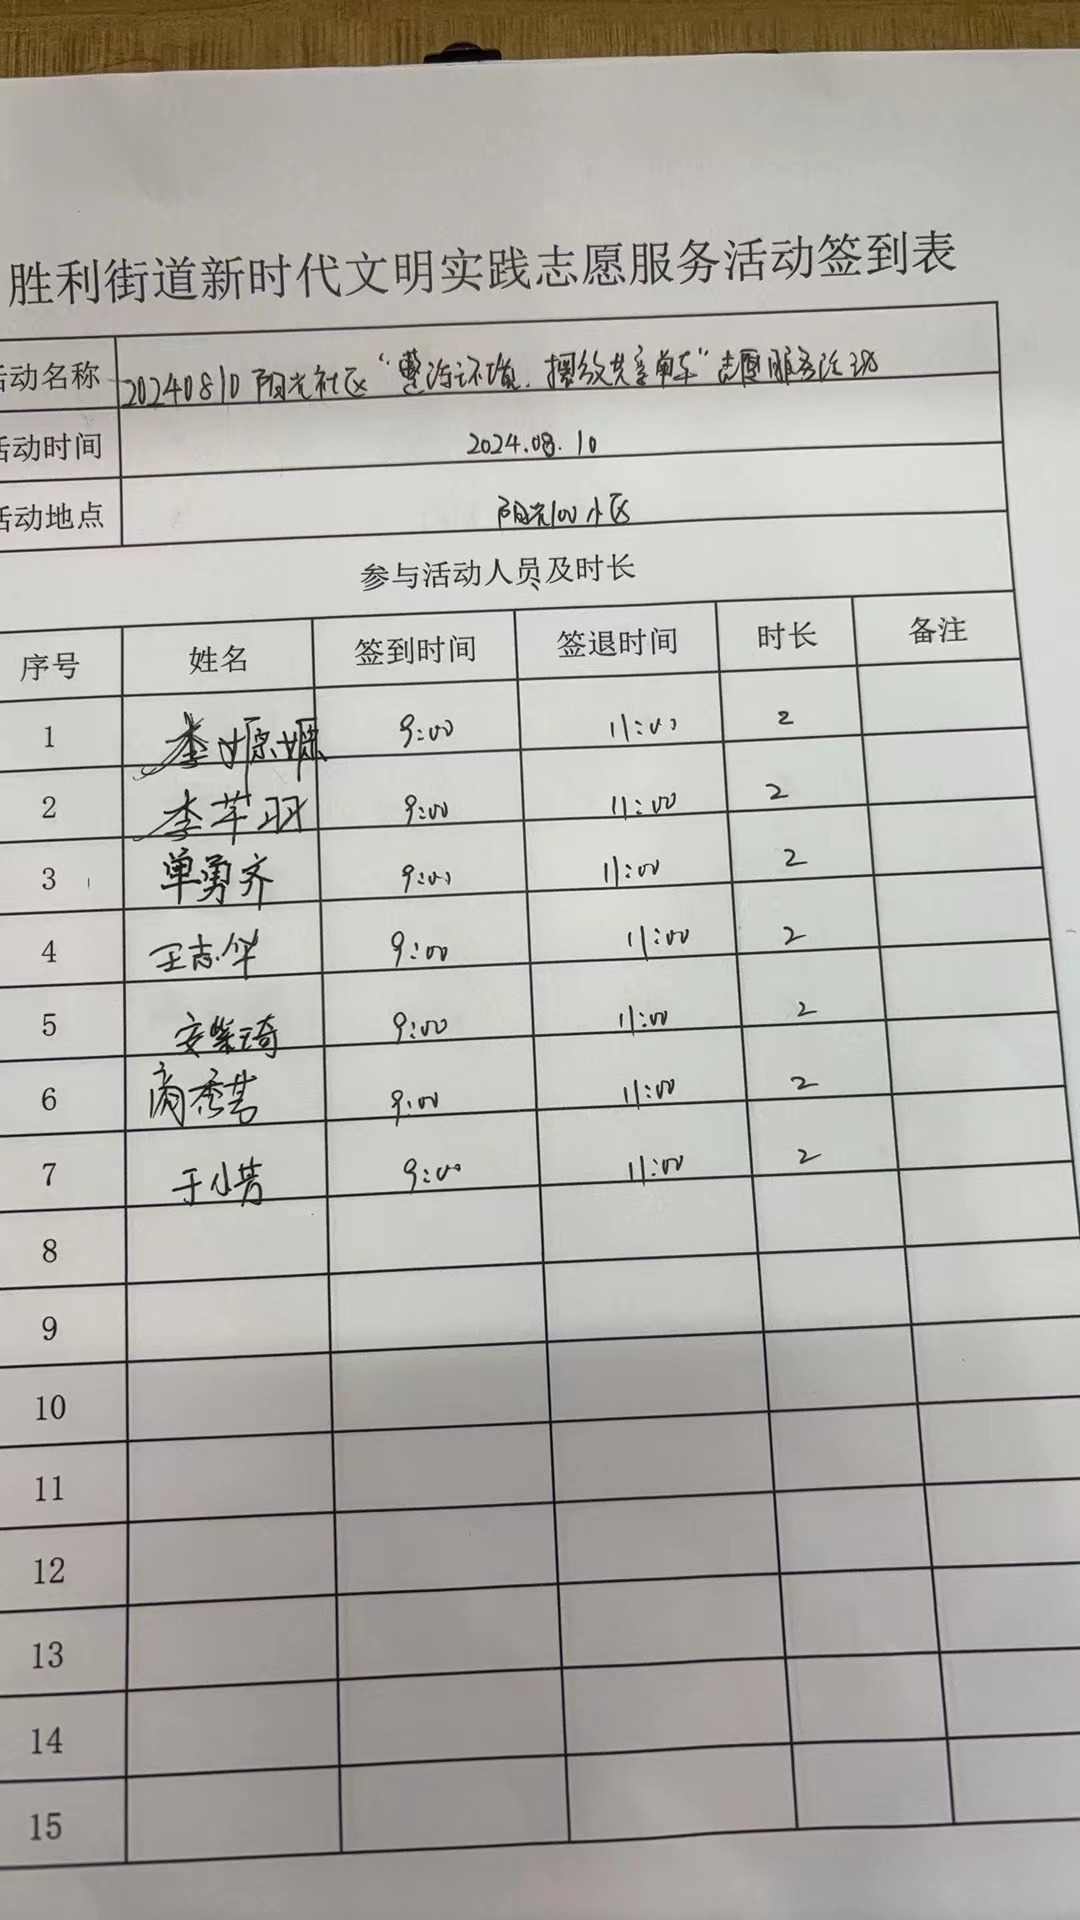 胜利街道新时代文明实践志愿服务活动签到表
活动名称 20240810阳光社区“整治环境,摆放共享单车”志愿服务活动
活动时间 2024.08.10
活动地点 阳光100小区
参与活动人员及时长
序号 姓名 签到时间 签退时间 时长 备注
1 李嫄嫄 9:00 11:00 2
2 李芊羽 9:00 11:00 2
3 单勇齐 9:00 11:00 2
4 王志华 9:00 11:00 2
5 安紫琦 9:00 11:00 2
6 9:00 11:00 2
7 于小芳 9:00 11:00 2
8
9
10
11
12
13
14
15